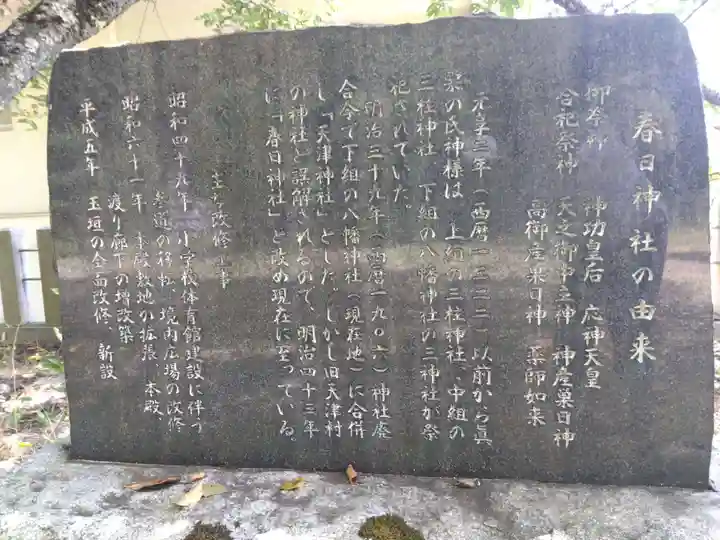 春日神社の由来
御祭神　神功皇后　応神天皇
合祀祭神　天之御中主神　神産巣日神
高御産巣日神　薬師如来
元享三年（西暦一三二三）以前から眞
梁の氏神様は、上組の三柱神社、中組の
三柱神社、下組の八幡神社の三神社が祭
祀されていた。
明治三十九年（西暦一九〇六）神社廃
合令で下組の八幡神社（現在地）に合併
し「天津神社」とした。しかし旧天津村
の神社と誤解されるので、明治四十三年
に「春日神社」と改め現在に至っている。
主な改修工事
昭和四十九年　小学校体育館建設に伴う
参道の移転、境内広場の改修
昭和六十一年　本殿敷地の拡張、本殿、
渡り廊下の増改築
平成五年　玉垣の全面改修、新設